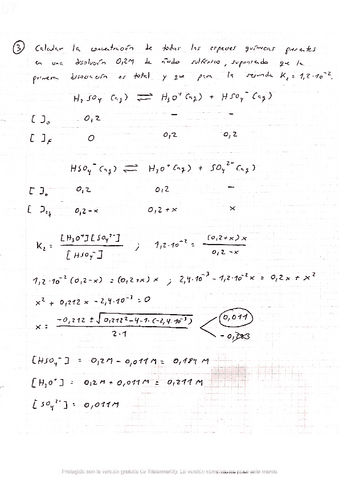 ③ Calcular la concentración de todas las especies químicas presentes
en una disolución 0,2M de ácido sulfúrico, suponiendo que la
primera disociación es total y que para la segunda K₂ = 1,2·10⁻².
H₂SO₄ (aq) ⇌ H₃O⁺ (aq) + HSO₄⁻ (aq)
[ ]₀ 0,2 – –
[ ]f 0 0,2 0,2
HSO₄⁻ (aq) ⇌ H₃O⁺ (aq) + SO₄²⁻ (aq)
[ ]₀ 0,2 0,2 –
[ ] 0,2-x 0,2+x x
K₂ = [H₃O⁺][SO₄²⁻] / [HSO₄⁻] ; 1,2·10⁻² = (0,2+x)x / 0,2-x
1,2·10⁻² (0,2-x) = (0,2+x)x ; 2,4·10⁻³ - 1,2·10⁻²x = 0,2x + x²
x² + 0,212x - 2,4·10⁻³ = 0
x = -0,212 ± √0,212² - 4·1·(-2,4·10⁻³) / 2·1 0,011
[HSO₄⁻] = 0,2M - 0,011M = 0,189M
[H₃O⁺] = 0,2M + 0,011M = 0,211M
[SO₄²⁻] = 0,011M